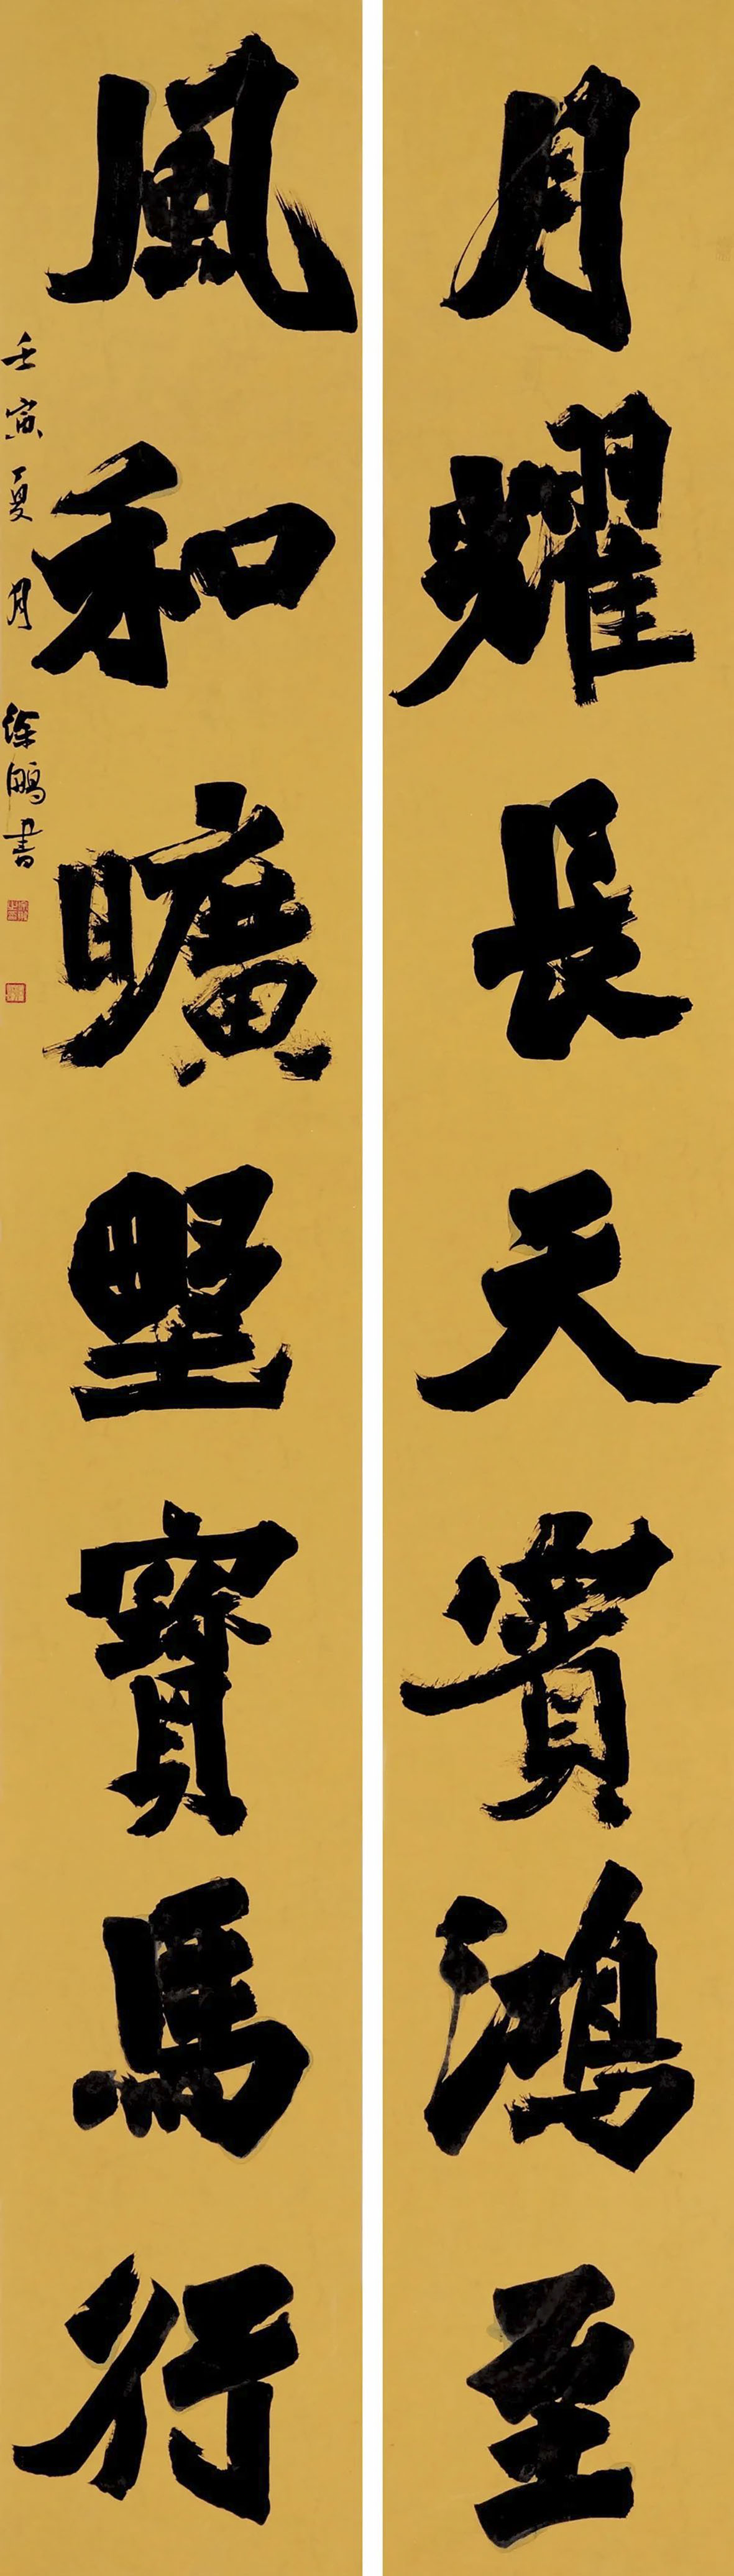 月耀長天賓鴻至
風和曠野寶馬行
壬寅夏月徐鵬書